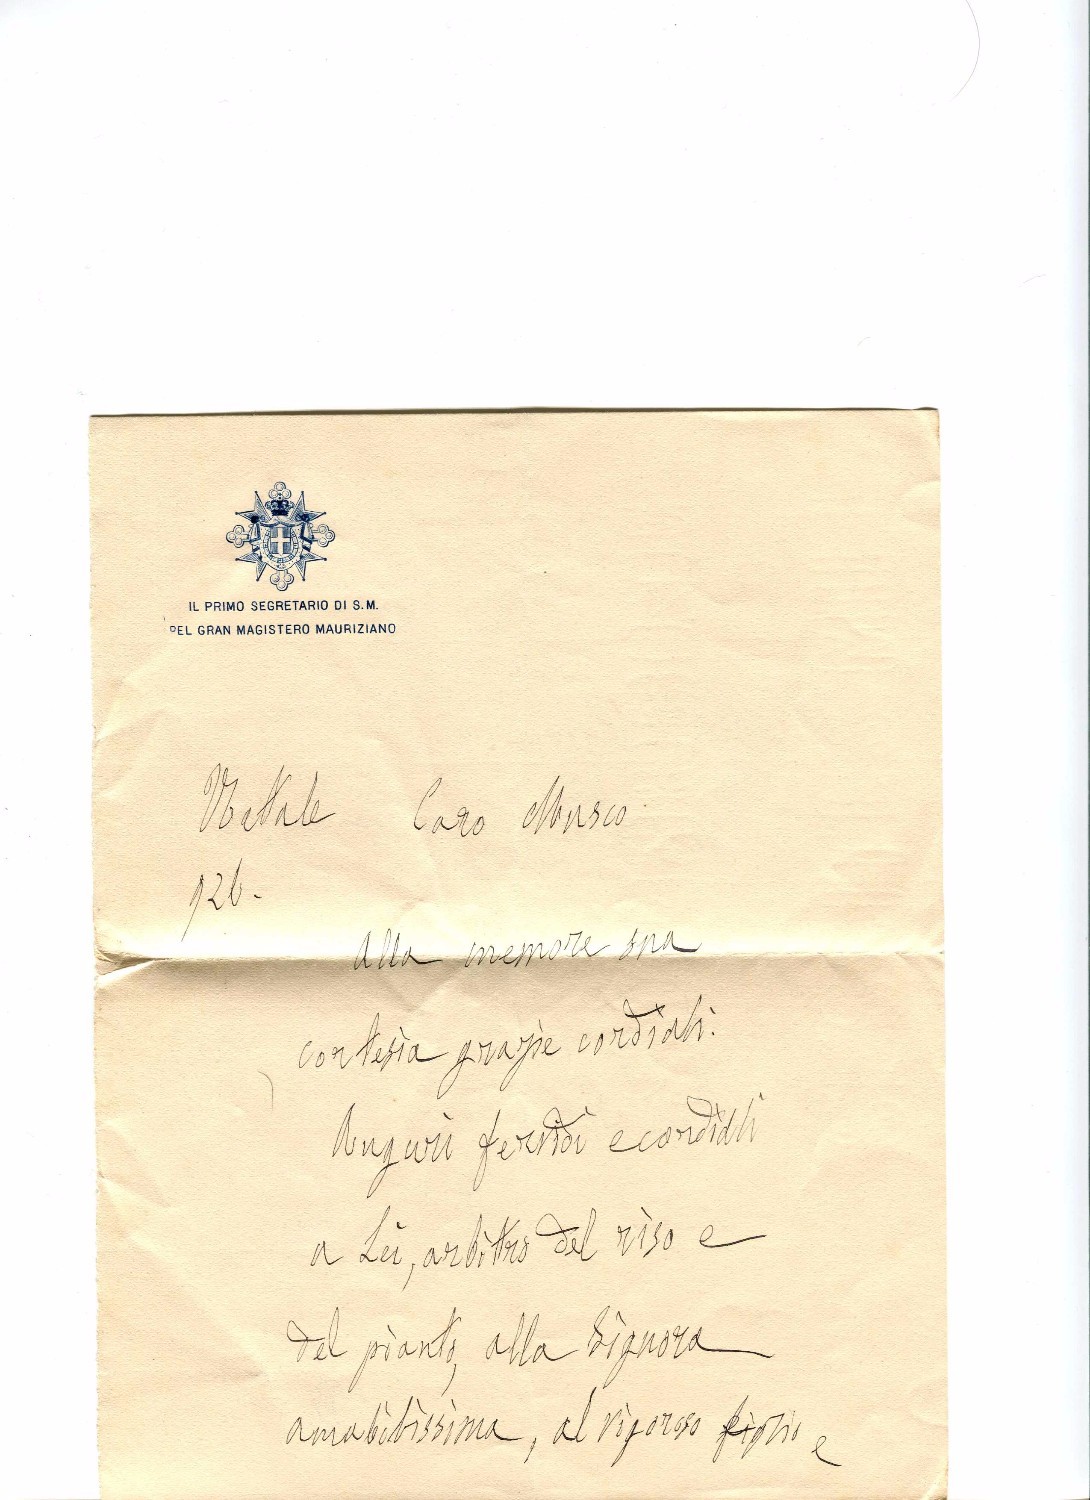 IL PRIMO SEGRETARIO DI S.M.
DEL GRAN MAGISTERO MAURIZIANO
Natale Caro Musco
926.
Alla memore sua
cortesia grazie cordiali.
Auguri fervidi e cordiali
a Lei, arbitro del riso e
del pianto, alla Signora
amabilissima, al vigoroso figlio e